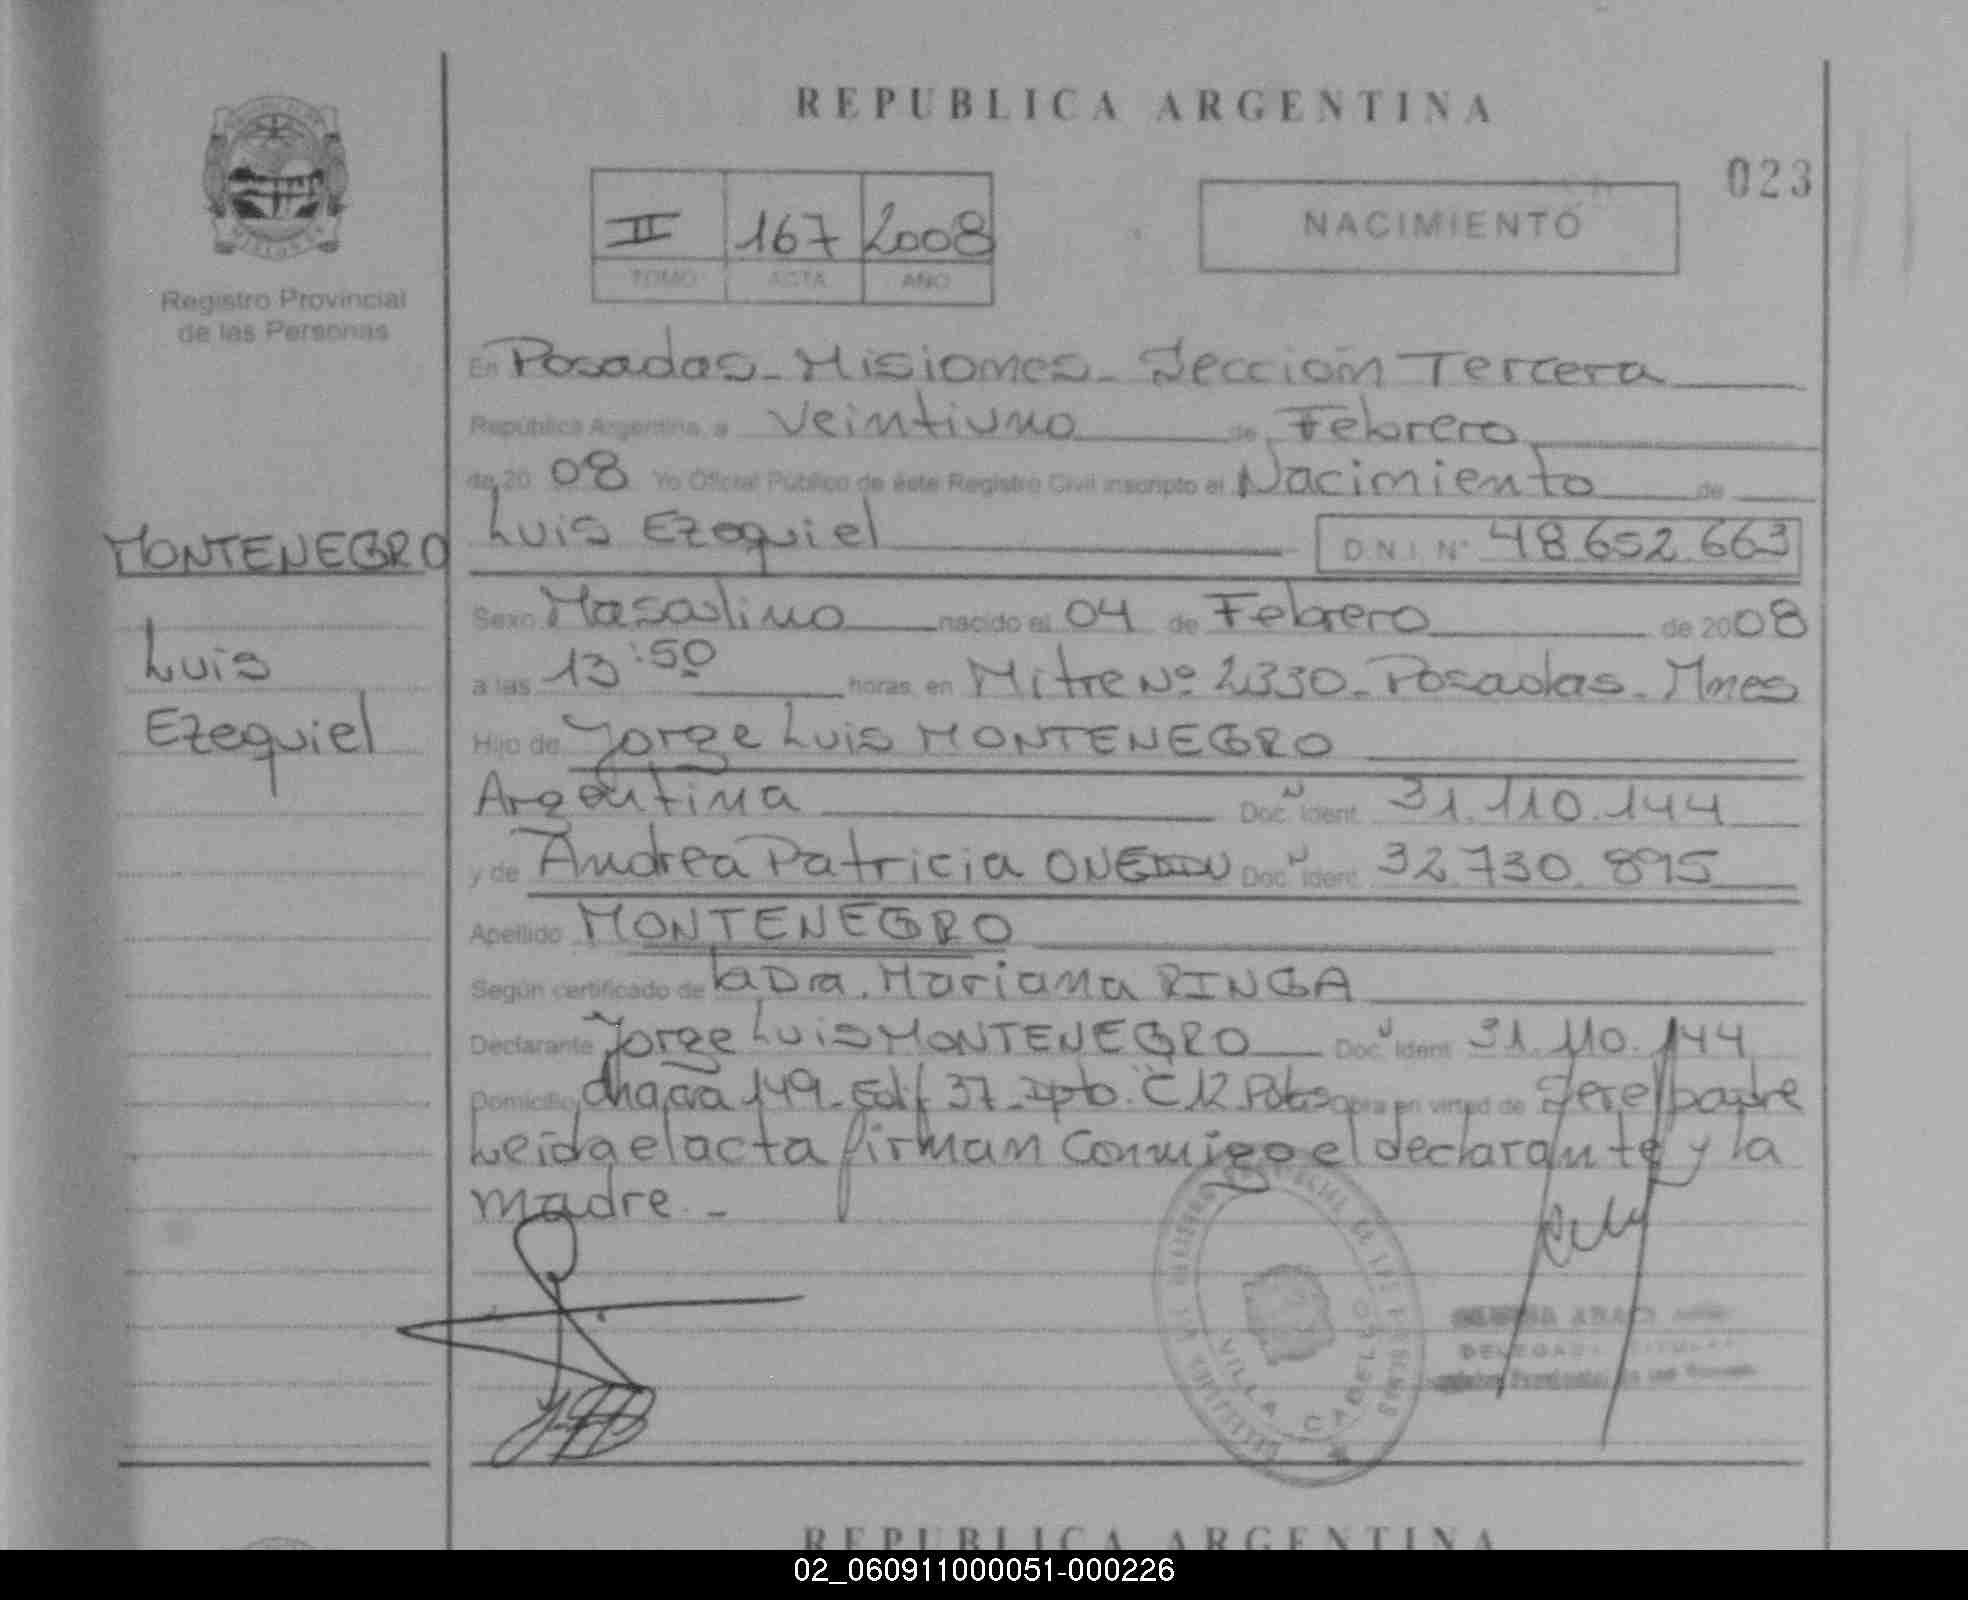 REPUBLICA ARGENTINA
023
II 167 2008
TOMO ACTA AÑO
NACIMIENTO
Registro Provincial
de las Personas
En Posadas - Misiones - Sección Tercera
República Argentina, a veintiuno de Febrero
de 20 08 Yo Oficial Público de éste Registro Civil inscripto el Nacimiento de
MONTENEGRO
Luis
Ezequiel
Luis Ezequiel D.N.I. Nº 48.652.663
Sexo Masculino nacido el 04 de Febrero de 2008
a las 13:50 horas, en Mitre Nº 2330 - Posadas - Mnes
Hijo de Jorge Luis MONTENEGRO
Argentina Doc. Ident. 31.110.144
y de Andrea Patricia Doc. Ident. 32.730.895
Apellido MONTENEGRO
Según certificado de la Dra. Mariana RINGA
Declarante Jorge Luis MONTENEGRO Doc. Ident. 31.110.144
Domicilio chacra 149 - Edif 37 - Dpto. "C" 12 Pdas obra en virtud de Ser el padre
Leída el acta firman conmigo el declarante y la
madre. -
VILLA CABELLO
REPUBLICA ARGENTINA
02_060911000051-000226